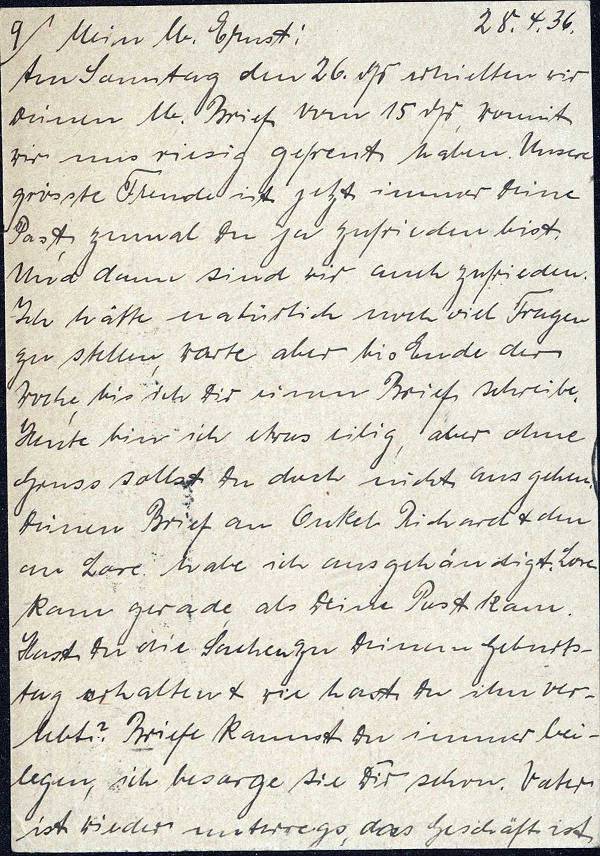 9/ Mein lb. Ernst! 28.4.36.
Am Sonntag den 26. ds erhielten wir
Deinen lb. Brief vom 15 ds, womit
wir uns riesig gefreut haben. Unsere
grösste Freude ist jetzt immer Deine
Post, zumal Du ja zufrieden bist.
Und dann sind wir auch zufrieden.
Ich hätte natürlich noch viel Fragen
zu stellen, warte aber bis Ende der
Woche, bis ich Dir einen Brief schreibe.
Heute bin ich etwas eilig, aber ohne
Gruss sollst Du doch nicht ausgehen.
Deinen Brief an Onkel Richard & den
an Lore habe ich ausgehändigt. Lore
kam gerade als Deine Post kam.
Hast Du die Sachen zu Deinem Geburts-
tag erhalten & wie hast Du ihn ver-
lebt? Briefe kannst Du immer bei-
legen, ich besorge sie Dir schon. Vater
ist wieder unterwegs, das Geschäft ist